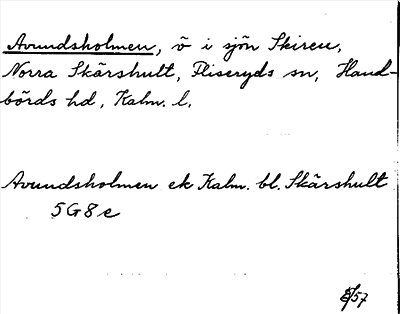 Avundsholmen, ö i sjön Skiren,
Norra Skärshult, Fliseryds sn, Hand-
börds hd, Kalm. l.
Avundsholmen ek Kalm. bl. Skärshult
5G8e
/57